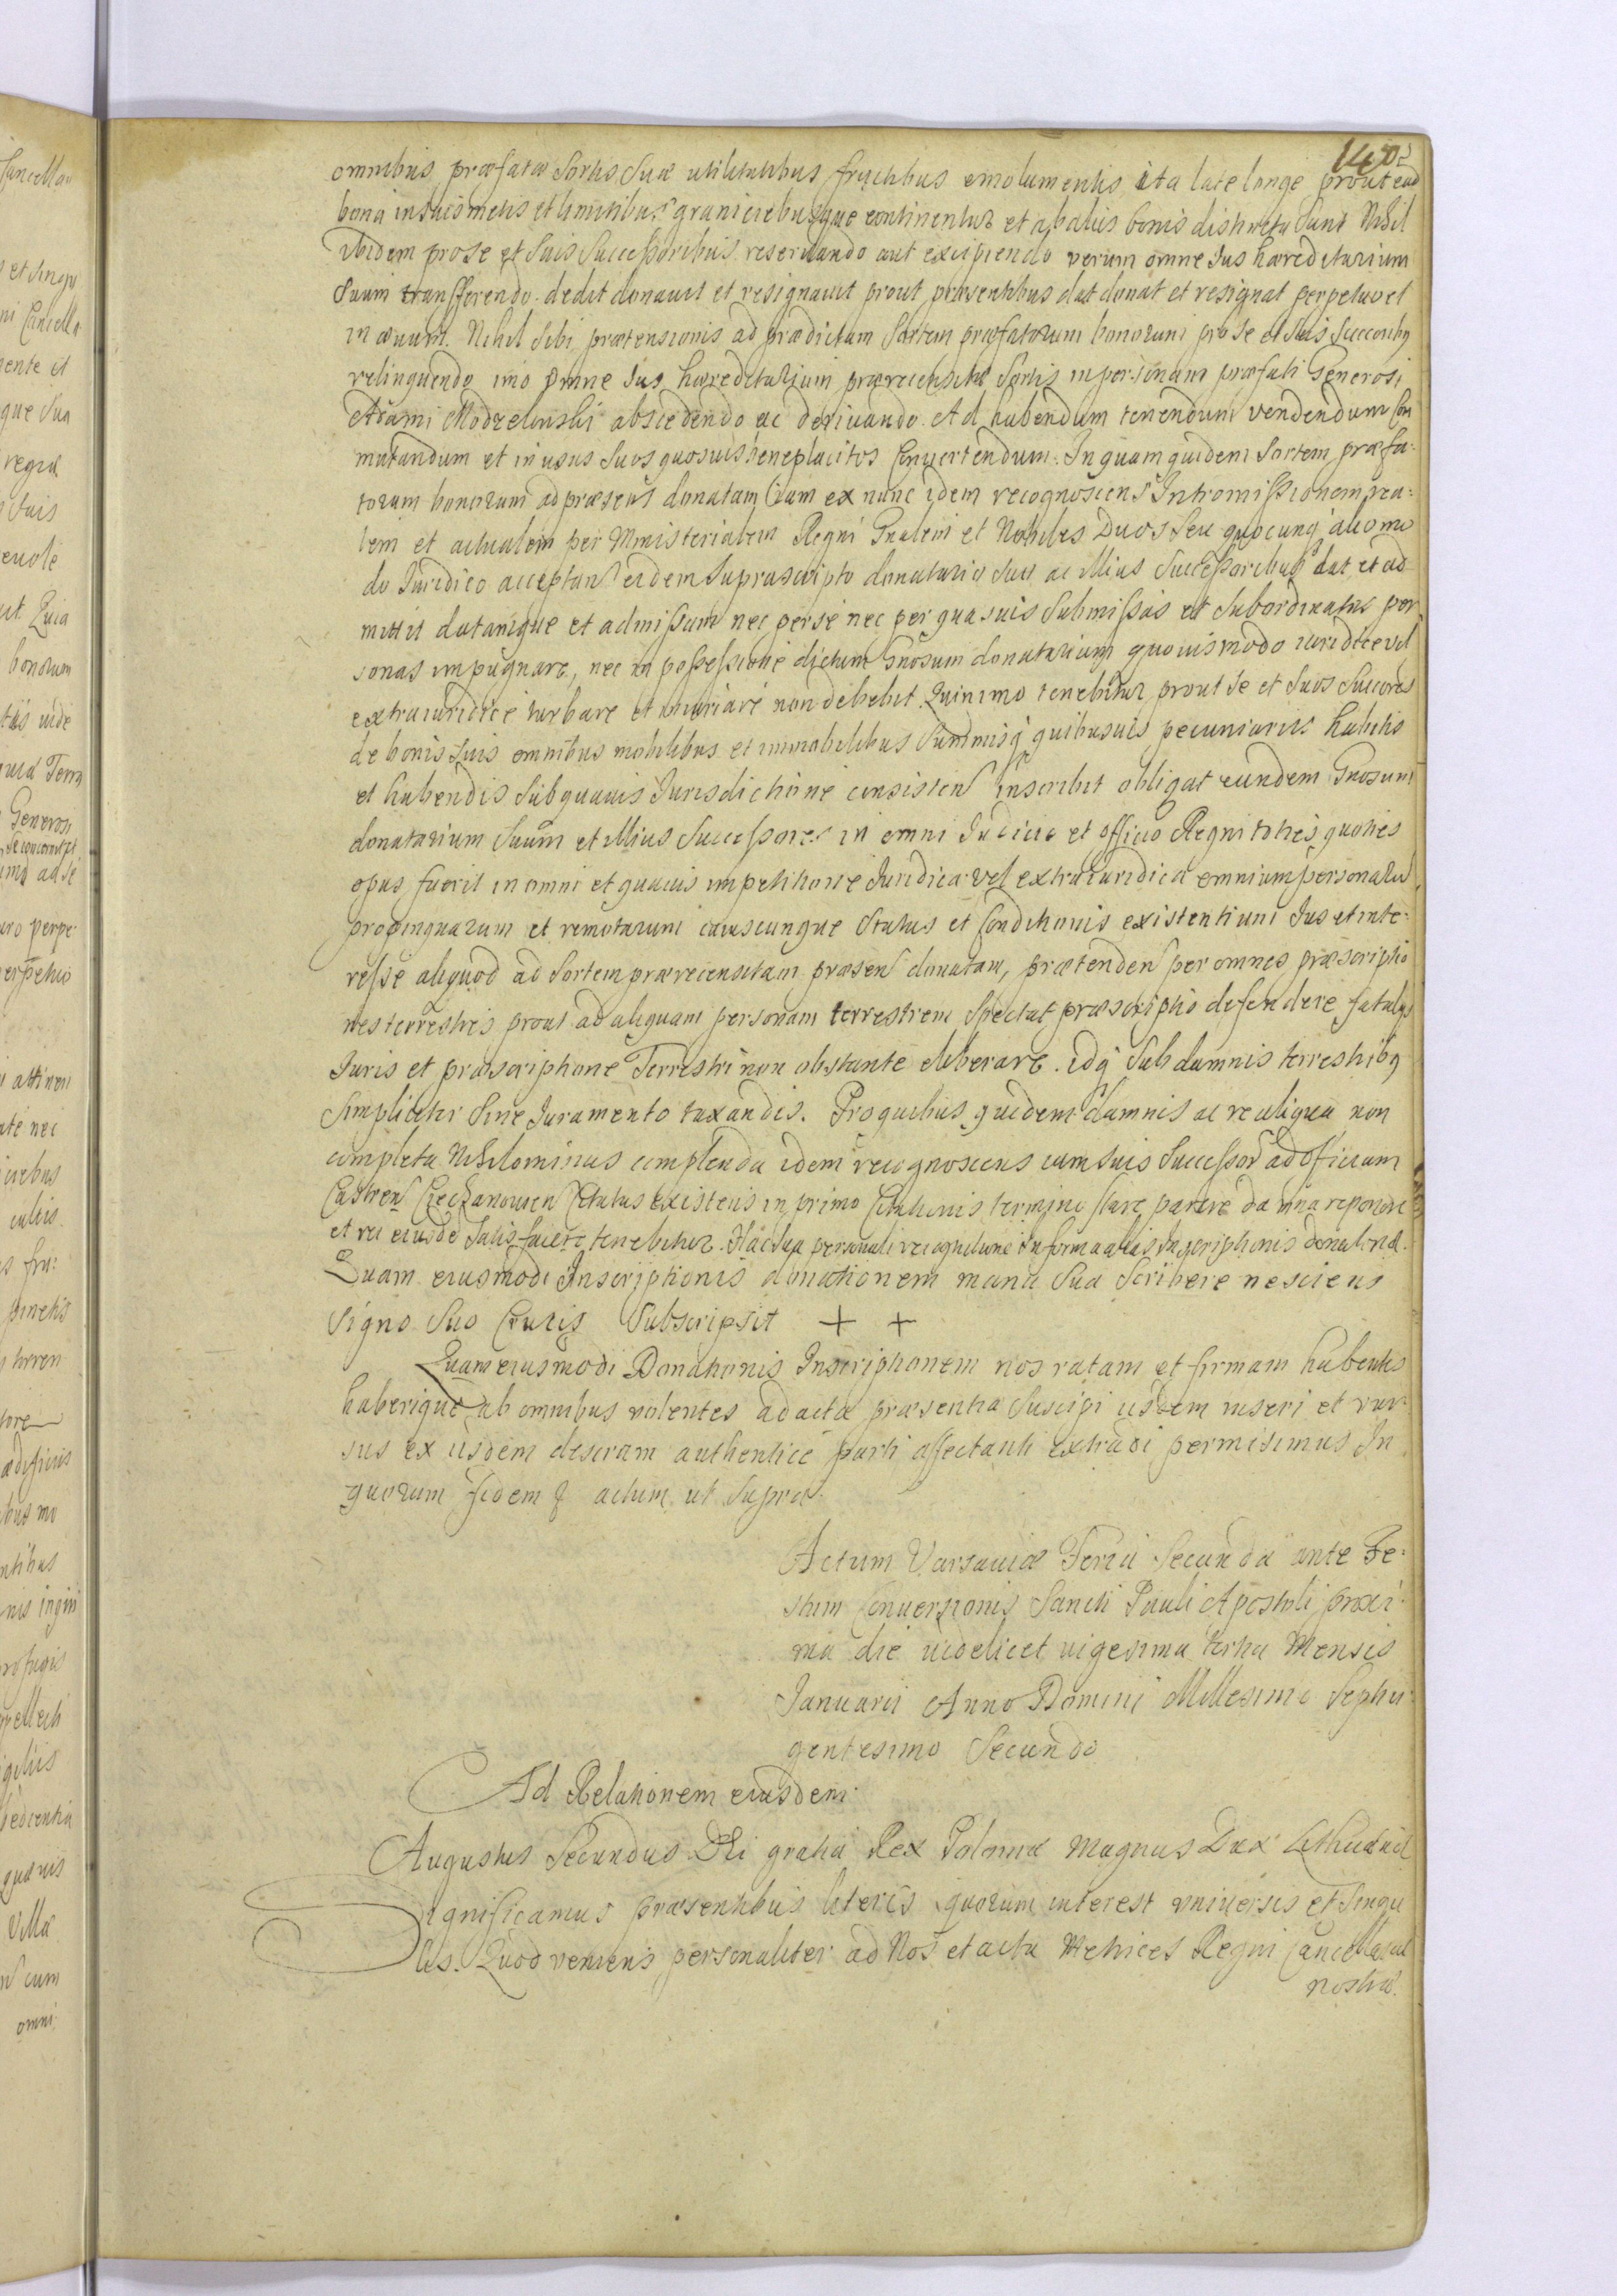 omnibus præfatæ Sortis Suæ utilitatibus fructibus emolumentis ita late longe prout ead
bona in suis metis et limitibus graniciebusque continentur et ab aliis bonis distincta sunt Nihil
ibidem pro se et Suis Successoribus reseruando aut excipiendo verum omne Jus hæreditarium
Suum transfferendo dedit donauit et resignauit prout præsentibus dat donat et resignat perpetuo et
in æuum. Nihil Sibi prætensionis ad prædictam Sortem præfatorum bonorum pro se et Suis Succoribq
relinquendo imo omne Jus hæreditarium præreciensitæ Sortis in personam præfati Generosi
Adami Modzelewski abscedendo ac deriuando. Ad habendum tenendum vendendum Com
mutandum et in usus Suos quosuis beneplacitos Conuertendum. In quam quidem Sortem præfa:
torum bonorum ad præsens donatam Iam ex nunc idem recognoscens Intromissionem rea:
lem et actualem per Ministerialem Regni Gnalem et Nobiles Duos Seu quocunq alio mo
do Iuridico acceptan eidem Suprascripto donatario Suo ac illius Successoribus dat et ad
mittit datamque et admissam nec per se nec per quasuis Submissas et Subordinatas per
sonas impugnare, nec in possessione dictum Gnosum donatarium quouismodo iuridice vel
extraiuridice turbare et iniuriare non debebit. Quinimo tenebitur prout se et Suos Succores
de bonis Suis omnibus mobilibus et immobilibus Summisq quibusuis pecuniariis habitis
et habendis Sub quauis Jurisdictione consisten inscribit obligat eundem Gnosum
donatarium Suum et illius Successores in omni Judicio et officio Regni toties quoties
opus fuerit in omni et quauis impetitione Juridica vel extraiuridica omnium personaru
propinquarum et remotarum cuiuscunque Status et Conditionis existentium Jus et inte:
resse aliquod ad Sortem prærecensitam præsen donatam, prætenden per omnes præscriptio
nes terrestres prout ad aliquam personam terrestrem Spectat præscriptio defendere fatalqs
Iuris et præscriptione Terrestri non obstante eliberare. idq Sub damnis terrestribq
Simpliciter Sine Juramento taxandis. Pro quibus quidem damnis ac re aliqua non
completa Nihilominus complenda idem recognoscens cum suis Successor ad officium
Castren Ciechanouien Citatus existens in primo Citationis termino stare parere damna reponere
et rei eiusde Satisfacere tenebitur. Hac Sua personali recognitione in forma talis Inscriptionis donatoriæ.
Quam eiusmodi Inscriptionis donationem manu Sua Scribere nesciens
Signo Suo Crucis Subscripsit + +
Quam eiusmodi Donationis Inscriptionem nos ratam et firmam habentes
haberique ab omnibus volentes ad acta præsentia Suscipi iisdem inseri et rur:
sus ex iisdem descram authentice parti affectanti extradi permisimus In
quorum fidem & actum ut Supra.
Actum Varsauiæ Feria Secunda ante Fe:
stum Conuersionis Sancti Pauli Apostoli proxi:
ma die videlicet uigesima tertia Mensis
Januarii Anno Domini Millesimo Septin
gentesimo Secundo
Ad Relationem eiusdem
Augustus Secundus Dei gratia Rex Poloniæ Magnus Dux Lithuaniæ
Significamus præsentibus literis quorum interest vniuersis et Singu
lis. Quod veniens personaliter ad Nos et acta Metrices Regni Cancellariæ
nostræ.